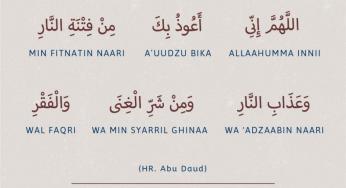 اللَّهُمَّ إِنِّي أَعُوذُ بِكَ مِنْ فِتْنَةِ النَّارِ
ALLAAHUMMA INNII A'UUDZU BIKA MIN FITNATIN NAARI
وَعَذَابِ النَّارِ وَمِنْ شَرِّ الْغِنَى وَالْفَقْرِ
WA 'ADZAABIN NAARI WA MIN SYARRIL GHINAA WAL FAQRI
(HR. Abu Daud)